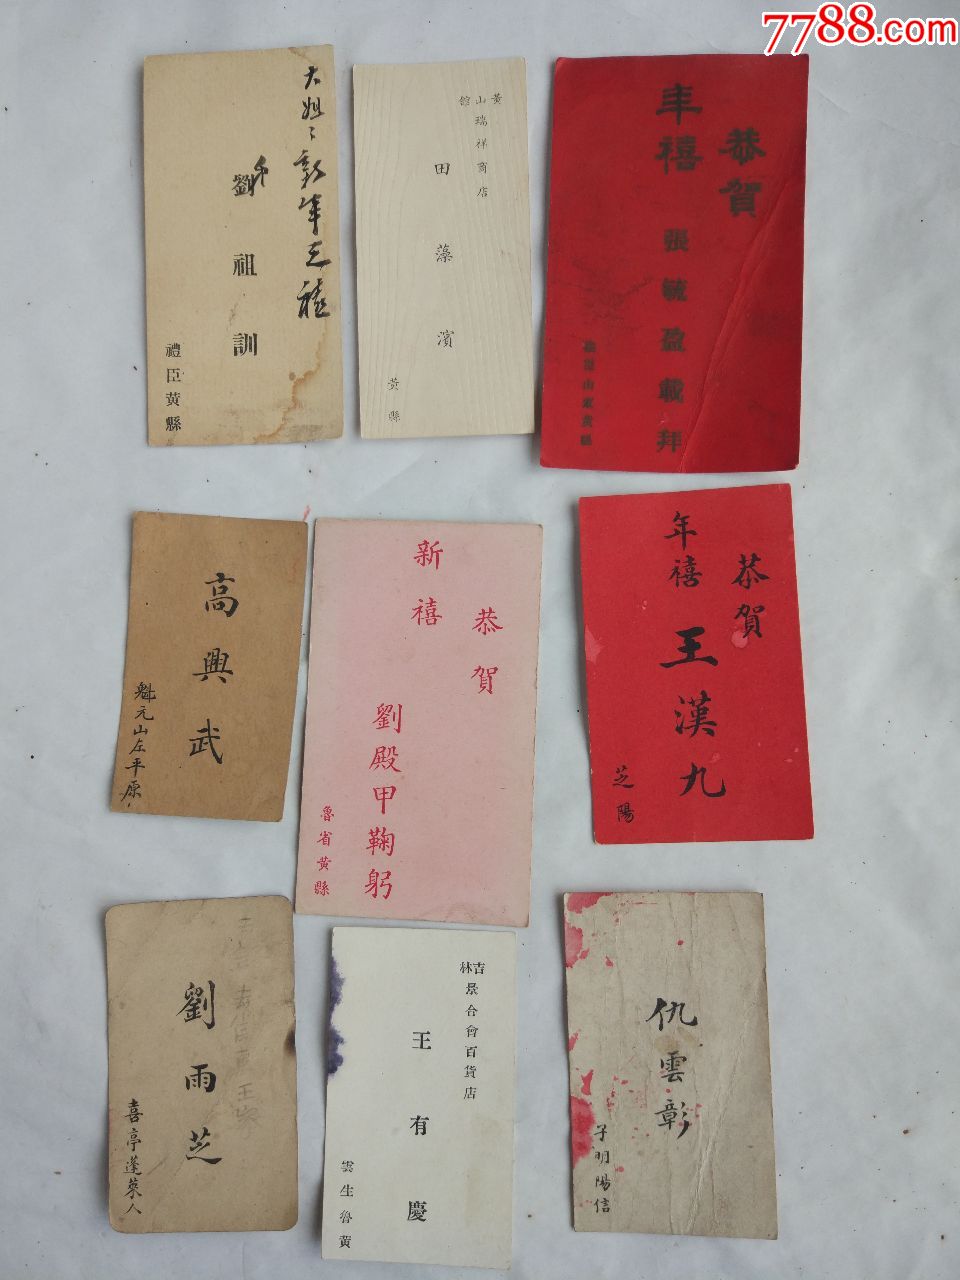 7788.com
大姐:新年之禧
劉祖訓
禮臣黃縣
黃山館
瑞祥商店
田藻濱
黃縣
恭賀
年禧
張毓盈載拜
山東黃縣
高興武
魁元山左平原
恭賀
新禧
劉殿甲鞠躬
魯省黃縣
恭賀
年禧
王漢九
芝陽
劉雨芝
喜亭蓬萊人
吉林
景合會百貨店
王有慶
雲生魯黃
仇雲彰
子明陽信